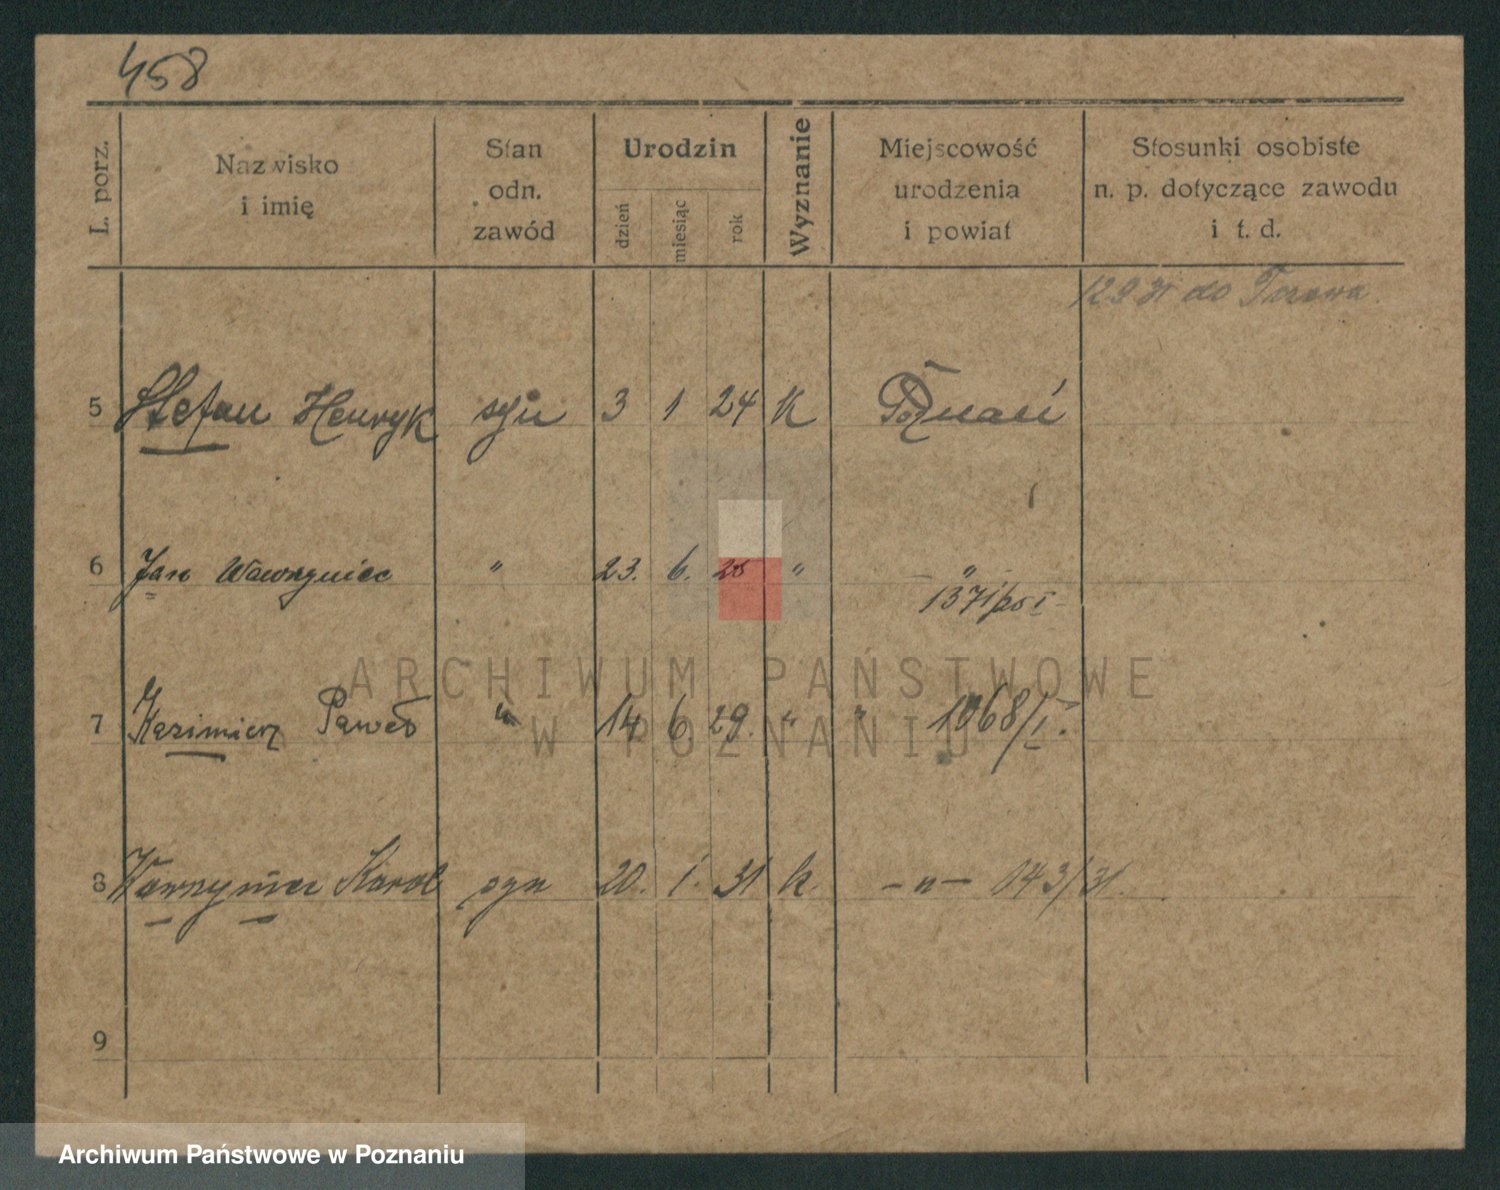 458
L. porz.
Nazwisko
i imię
Stan
odn.
zawód
Urodzin
dzień
miesiąc
rok
Wyznanie
Miejscowość
urodzenia
i powiat
Stosunki osobiste
n. p. dotyczące zawodu
i t. d.
do
5 Stefan Henryk syn 3 1 24 K Poznań
6 Jan Wawrzyniec " 23. 6. " "
1371/25 I
7 Kazimierz Paweł " 14 6 29. " " 1068/I.
8 Wawrzyniec Karol syn 20. 1. 31 k. -"- 143/31.
9
ARCHIWUM PAŃSTWOWE
W POZNANIU
Archiwum Państwowe w Poznaniu